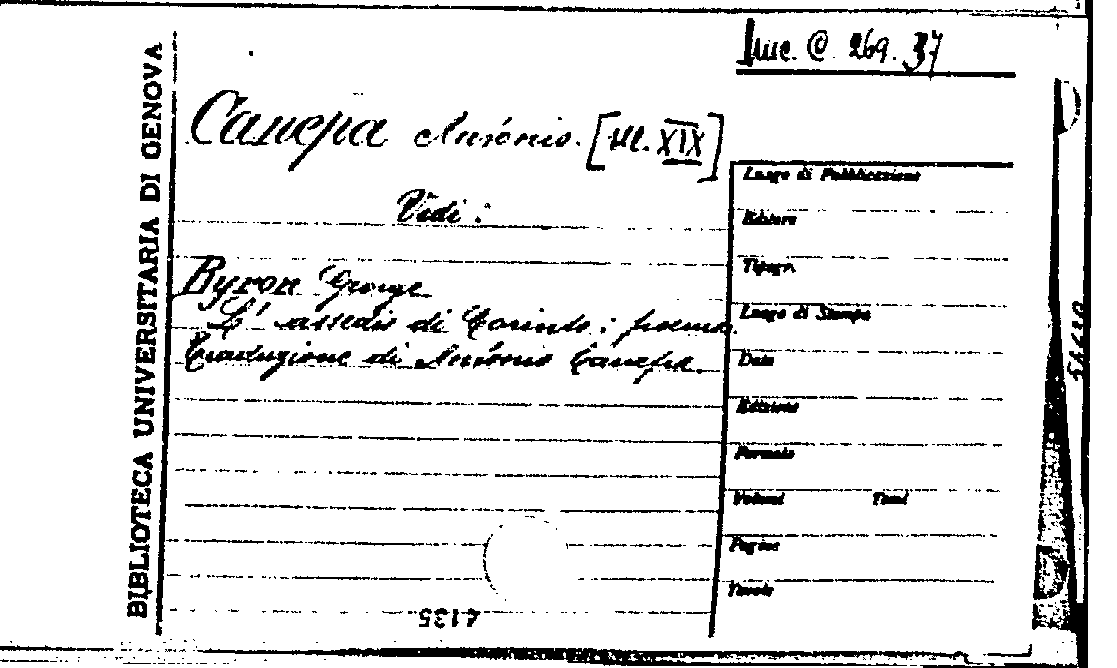 BIBLIOTECA UNIVERSITARIA DI GENOVA
Misc. @ 269. 37
Canepa Antonio. [sec. XIX]
Vedi:
Byron George
L'assedio di Corinto: poema.
Traduzione di Antonio Canepa
Luogo di Pubblicazione
Editore
Tipogr.
Luogo di Stampa
Data
Edizione
Formato
Volumi Tomi
Pagine
Tavole